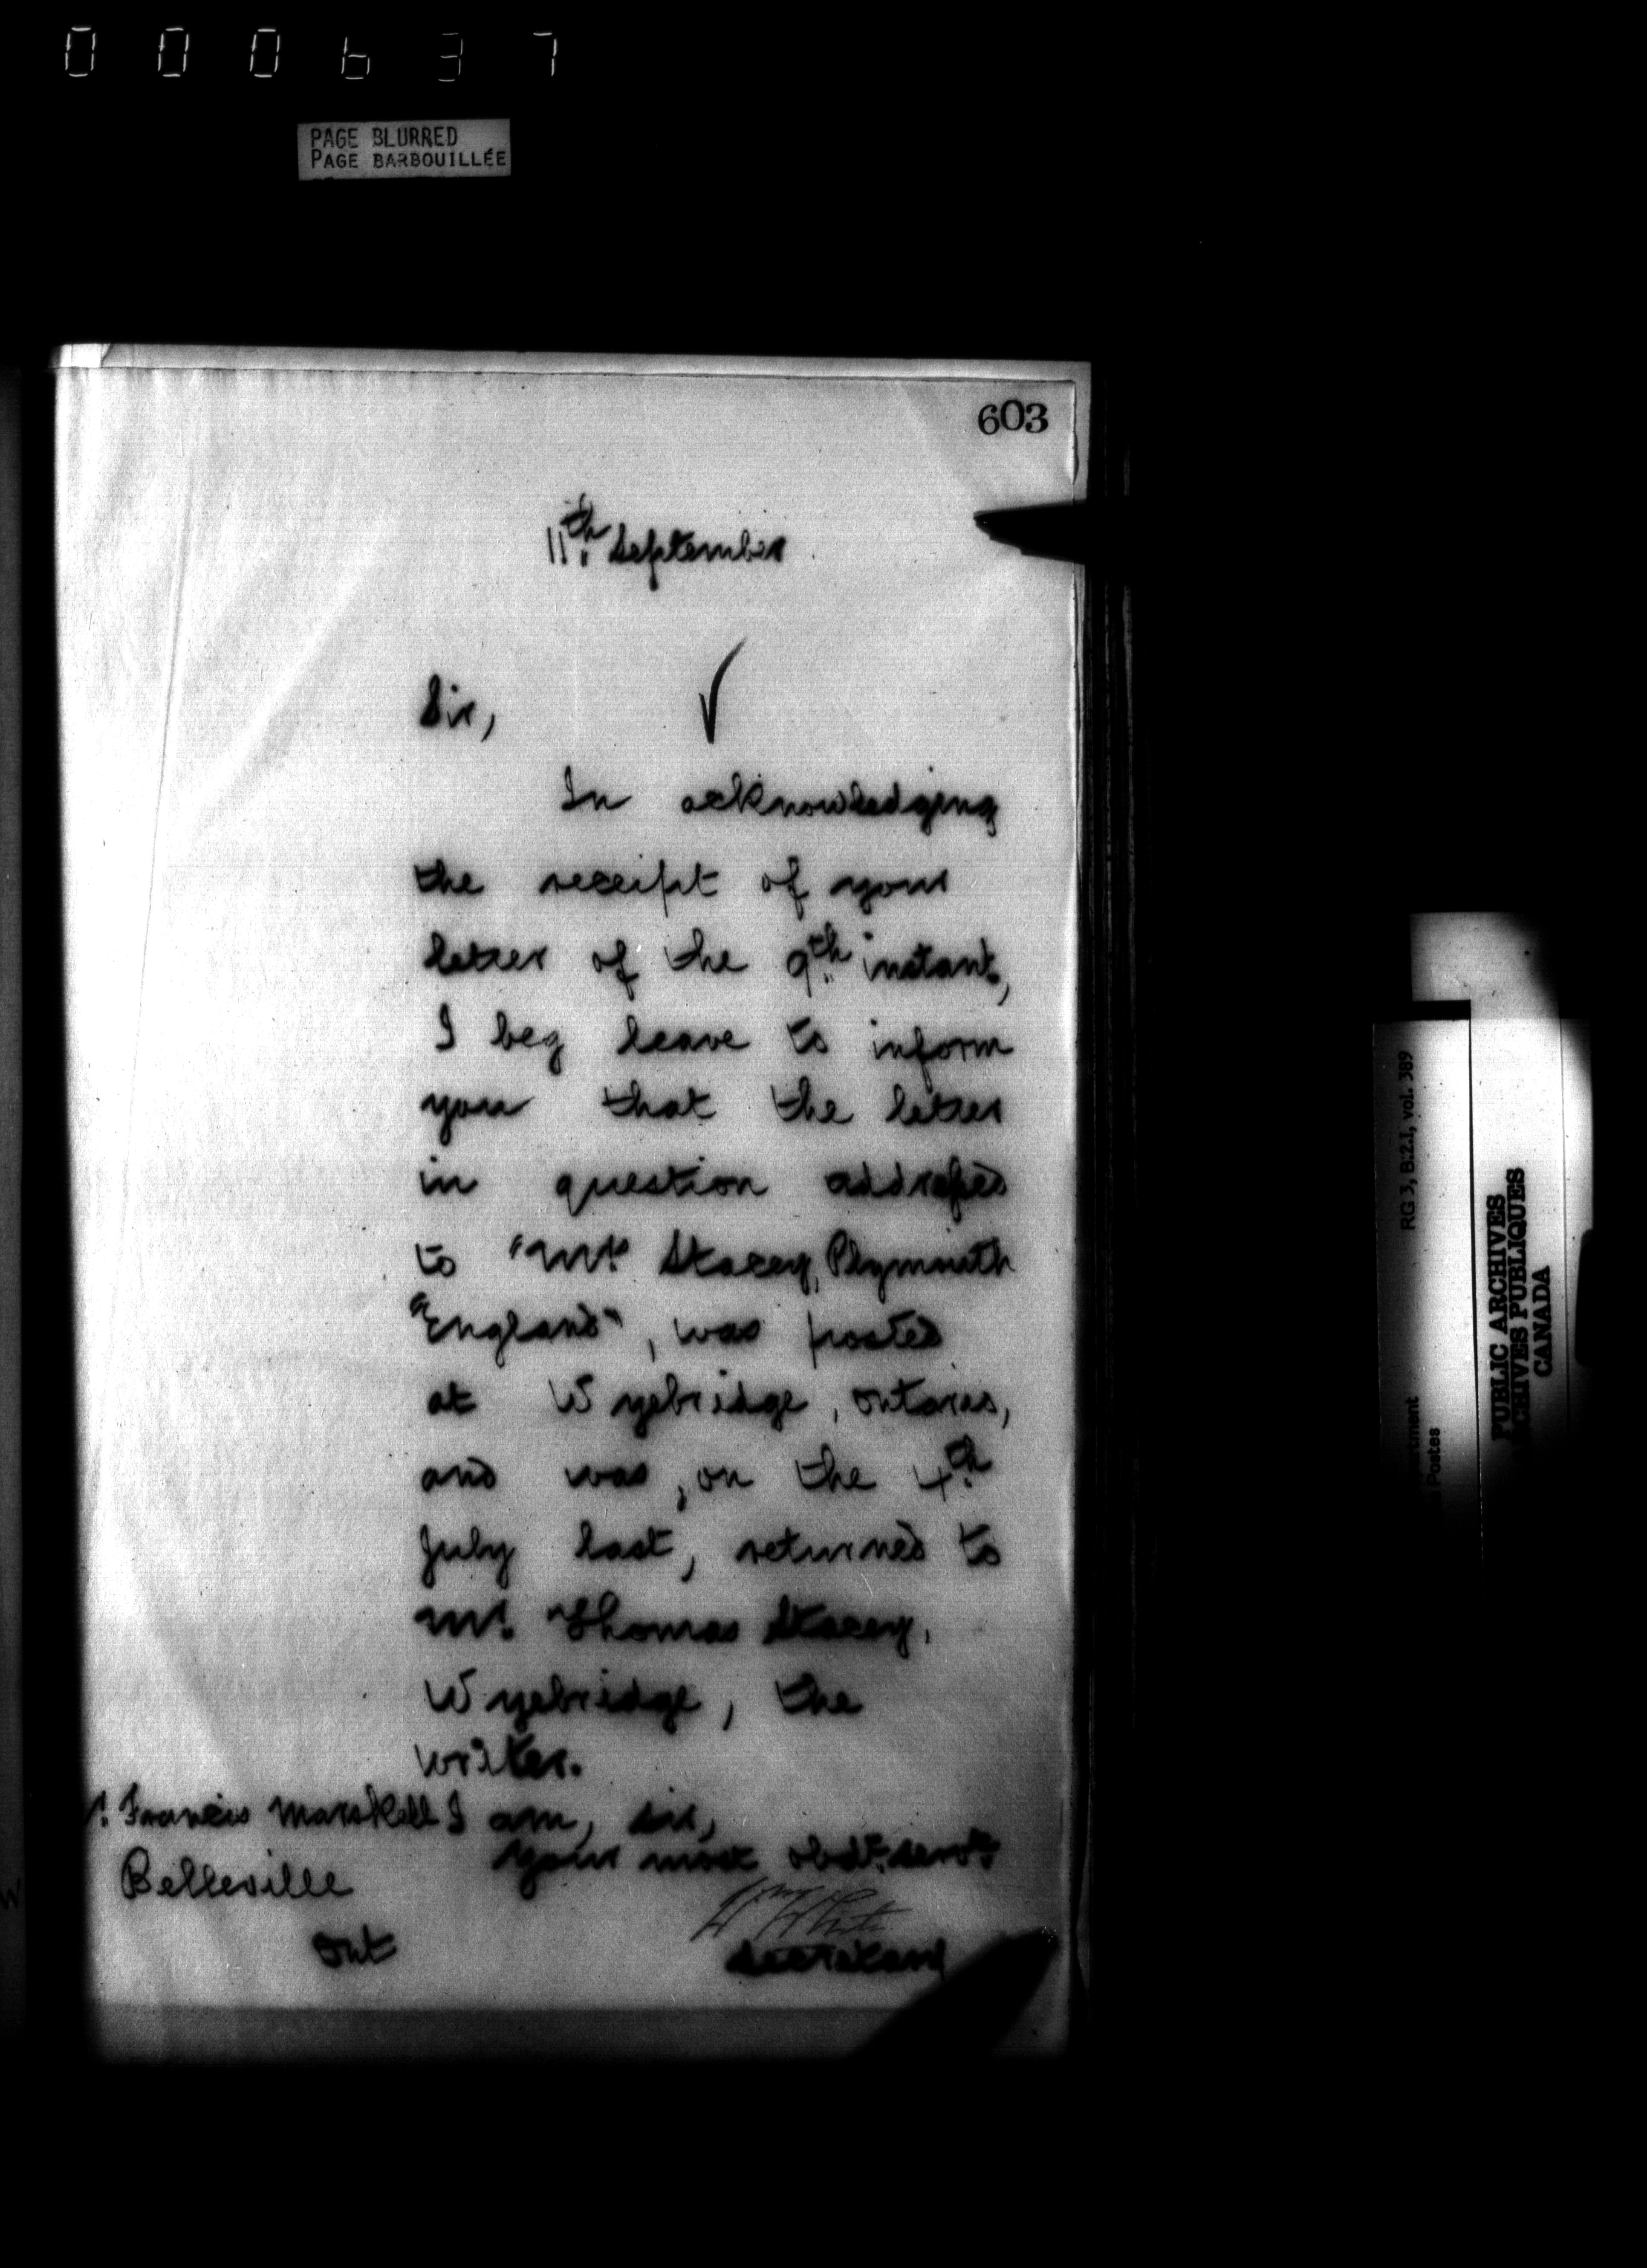 000637
PAGE BLURRED
PAGE BARBOUILLÉE
603
11th. September
Sir,
In acknowledging
the receipt of your
letter of the 9th. instant,
I beg leave to inform
you that the letter
in question addressed
to "Mr. Stacey, Plymouth
"England", was posted
at Wyebridge, Ontario,
and was, on the 4th.
July last, returned to
Mr. Thomas Stacey,
Wyebridge, the
writer.
I am, Sir,
Your most obdt. servt.
Wm White
Secretary
r. Francis Marskell
Belleville
Ont
RG 3, B.2.1, vol. 389
Postes
PUBLIC ARCHIVES
CHIVES PUBLIQUES
CANADA